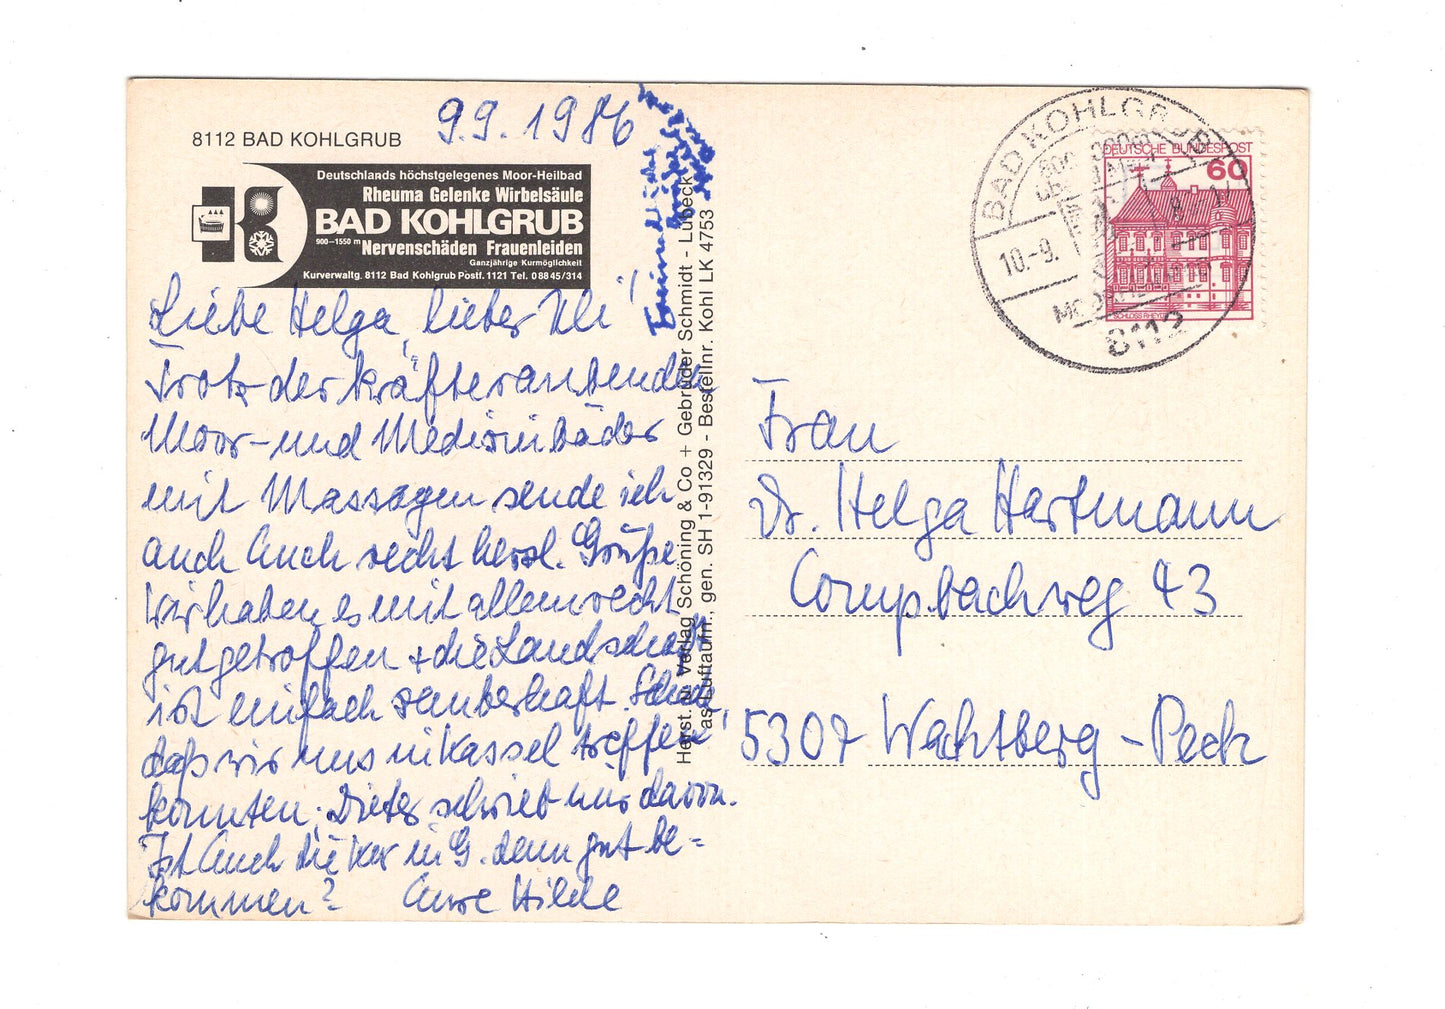 9.9.1986
8112 BAD KOHLGRUB
Deutschlands höchstgelegenes Moor-Heilbad
Rheuma Gelenke Wirbelsäule
BAD KOHLGRUB
900–1550 m Nervenschäden Frauenleiden
Ganzjährige Kurmöglichkeit
Kurverwaltg. 8112 Bad Kohlgrub Postf. 1121 Tel. 08845/314
Liebe Helga, lieber Uli!
Trotz der kräfteraubenden
Moor- und Medizinbäder
mit Massagen sende ich
auch Euch recht herzl. Grüße
Wir haben es mit allem recht
gut getroffen + die Landschaft
ist einfach zauberhaft. Schade,
daß wir uns in Kassel treffen
konnten; Dieter schrieb mir davon.
Ist Euch die Kur in G. denn gut be=
kommen? Eure Hilde
Horst. u. Verlag Schöning & Co + Gebrüder Schmidt - Lübeck
as Luftaufn., gen. SH 1-91329 - Bestellnr. Kohl LK 4753
BAD KOHLGRUB
10.-9.
8112
DEUTSCHE BUNDESPOST
60
SCHLOSS RHEYDT
Frau
Dr. Helga Hartmann
Compbachweg 43
5307 Wachtberg-Pech